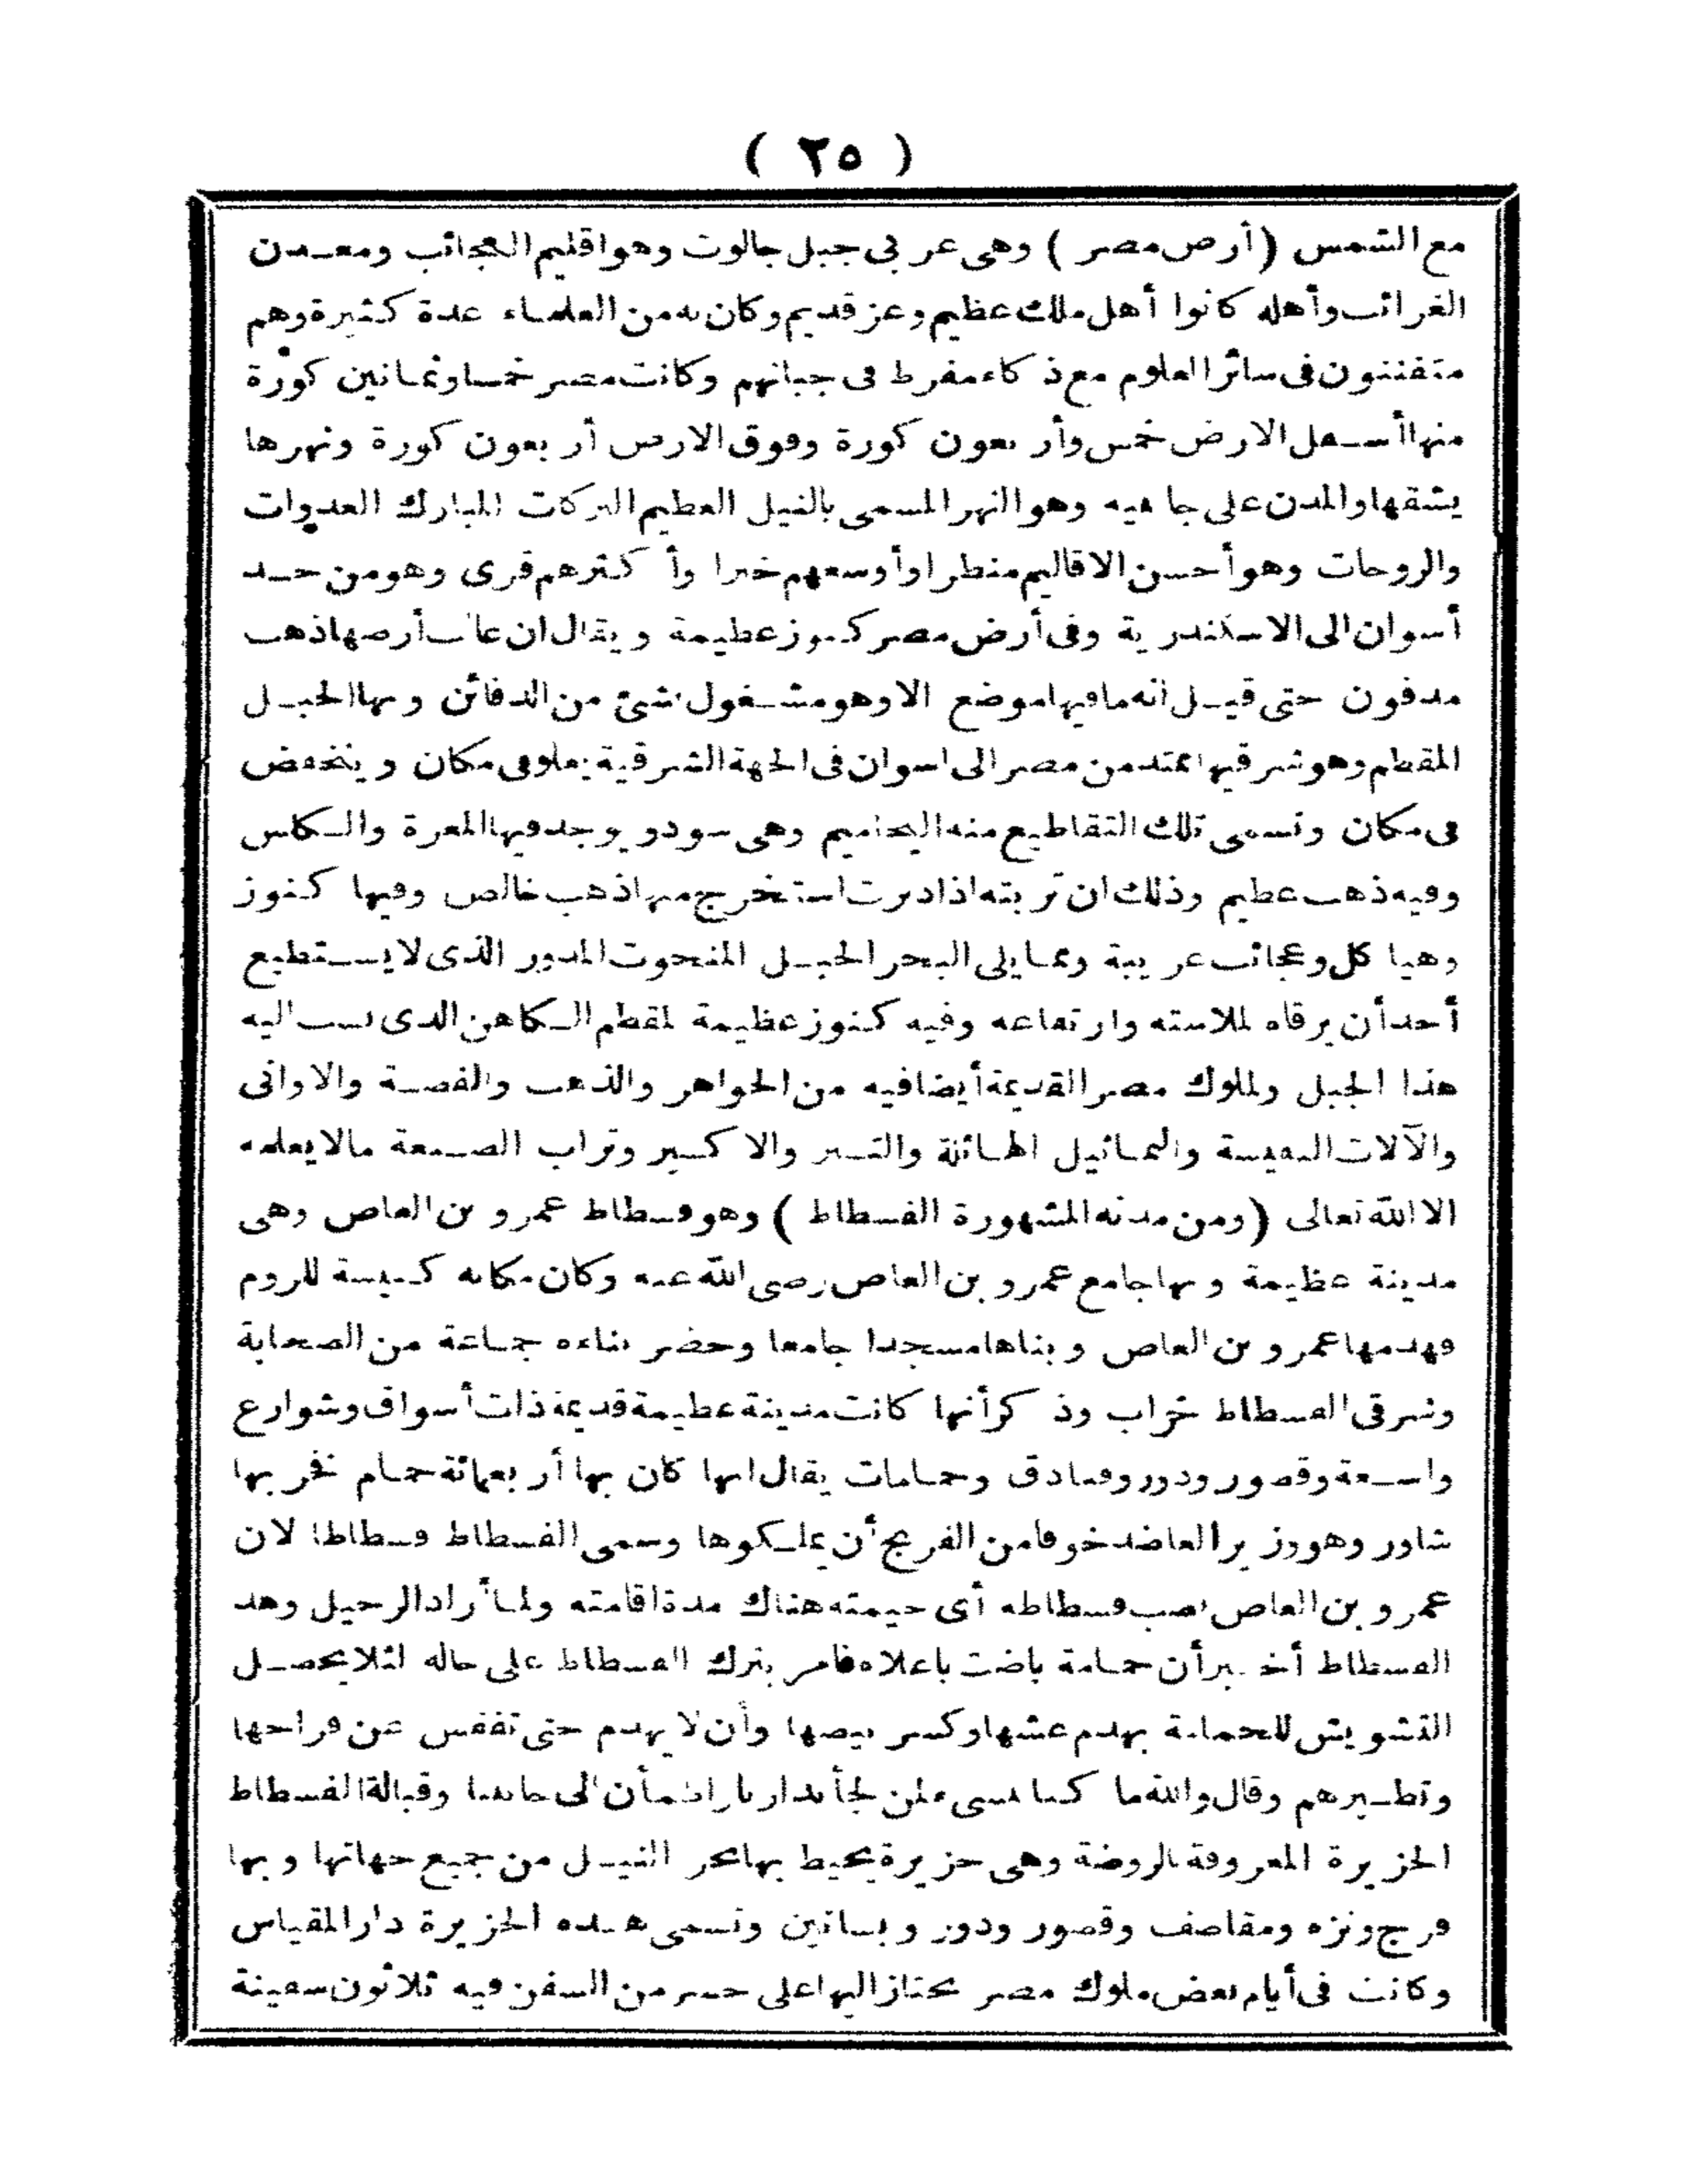 ( ٢٥ )
مع الشمس (أرض مصر) وهى غربى جبل جالوت وهو اقليم العجائب ومعدن
الغرائب وأهله كانوا أهل ملك عظيم وعز قديم وكان به من العلماء عدة كثيرة وهم
متفننون فى سائر العلوم مع ذكاء مفرط فى جبلتهم وكانت مصر خمسا وثمانين كورة
منها أسفل الارض خمس وأربعون كورة وفوق الارض أربعون كورة ونهرها
يشقها والمدن على جانبيه وهو النهر المسمى بالنيل العظيم البركات المبارك الغدوات
والروحات وهو أحسن الاقاليم منظرا وأوسعهم خيرا وأكثرهم قرى وهو من حد
أسوان الى الاسكندرية وفى أرض مصر كنوز عظيمة ويقال ان غالب أرضها ذهب
مدفون حتى قيل انه ما فيها موضع الا وهو مشغول بشئ من الدفائن وبها الجبل
المقطم وهو شرقيها ممتد من مصر الى اسوان فى الجهة الشرقية يعلو فى مكان وينخفض
فى مكان وتسمى تلك التقاطيع منه اليحاميم وهى سود ويوجد فيها المغرة والكلس
وفيه ذهب عظيم وذلك ان تربته اذا دبرت استخرج منها ذهب خالص وفيها كنوز
وهيا كل وعجائب غريبة ومما يلى البحر الجبل المنحوت المدور الذى لا يستطيع
أحد أن يرقاه لملاسته وارتفاعه وفيه كنوز عظيمة لمقطم الكاهن الذى نسب اليه
هذا الجبل ولملوك مصر القديمة أيضا فيه من الجواهر والذهب والفضة والاوانى
والآلات النفيسة والتماثيل الهائلة والتبر والا كسير وتراب الصنعة مالا يعلمه
الا الله تعالى (ومن مدنه المشهورة الفسطاط) وهو فسطاط عمرو بن العاص وهى
مدينة عظيمة وبها جامع عمرو بن العاص رضى الله عنه وكان مكانه كنيسة للروم
فهدمها عمرو بن العاص وبناها مسجدا جامعا وحضر بناءه جماعة من الصحابة
وشرقى الفسطاط خراب وذكر أنها كانت مدينة عظيمة قديمة ذات أسواق وشوارع
واسعة وقصور ودور وفنادق وحمامات يقال انها كان بها أربعمائة حمام فخربها
شاور وهو وزير العاضد خوفا من الفرنج أن يملكوها وسمى الفسطاط فسطاطا لان
عمرو بن العاص نصب فسطاطه أى خيمته هناك مدة اقامته ولما أراد الرحيل وهد
الفسطاط أخبر أن حمامة باضت باعلاه فامر بترك الفسطاط على حاله لئلا يحصل
التشويش للحمامة بهدم عشها وكسر بيضها وأن لا يهدم حتى تفقس عن فراخها
وتطيرهم وقال والله ما كنا لنسىء لمن لجأ بدارنا واطمأن الى جانبنا وقبالة الفسطاط
الجزيرة المعروفة بالروضة وهى جزيرة يحيط بها بحر النيل من جميع جهاتها وبها
فرج ونزه ومقاصف وقصور ودور وبساتين وتسمى هذه الجزيرة دار المقياس
وكانت فى أيام بعض ملوك مصر يجتاز اليها على جسر من السفن فيه ثلاثون سفينة